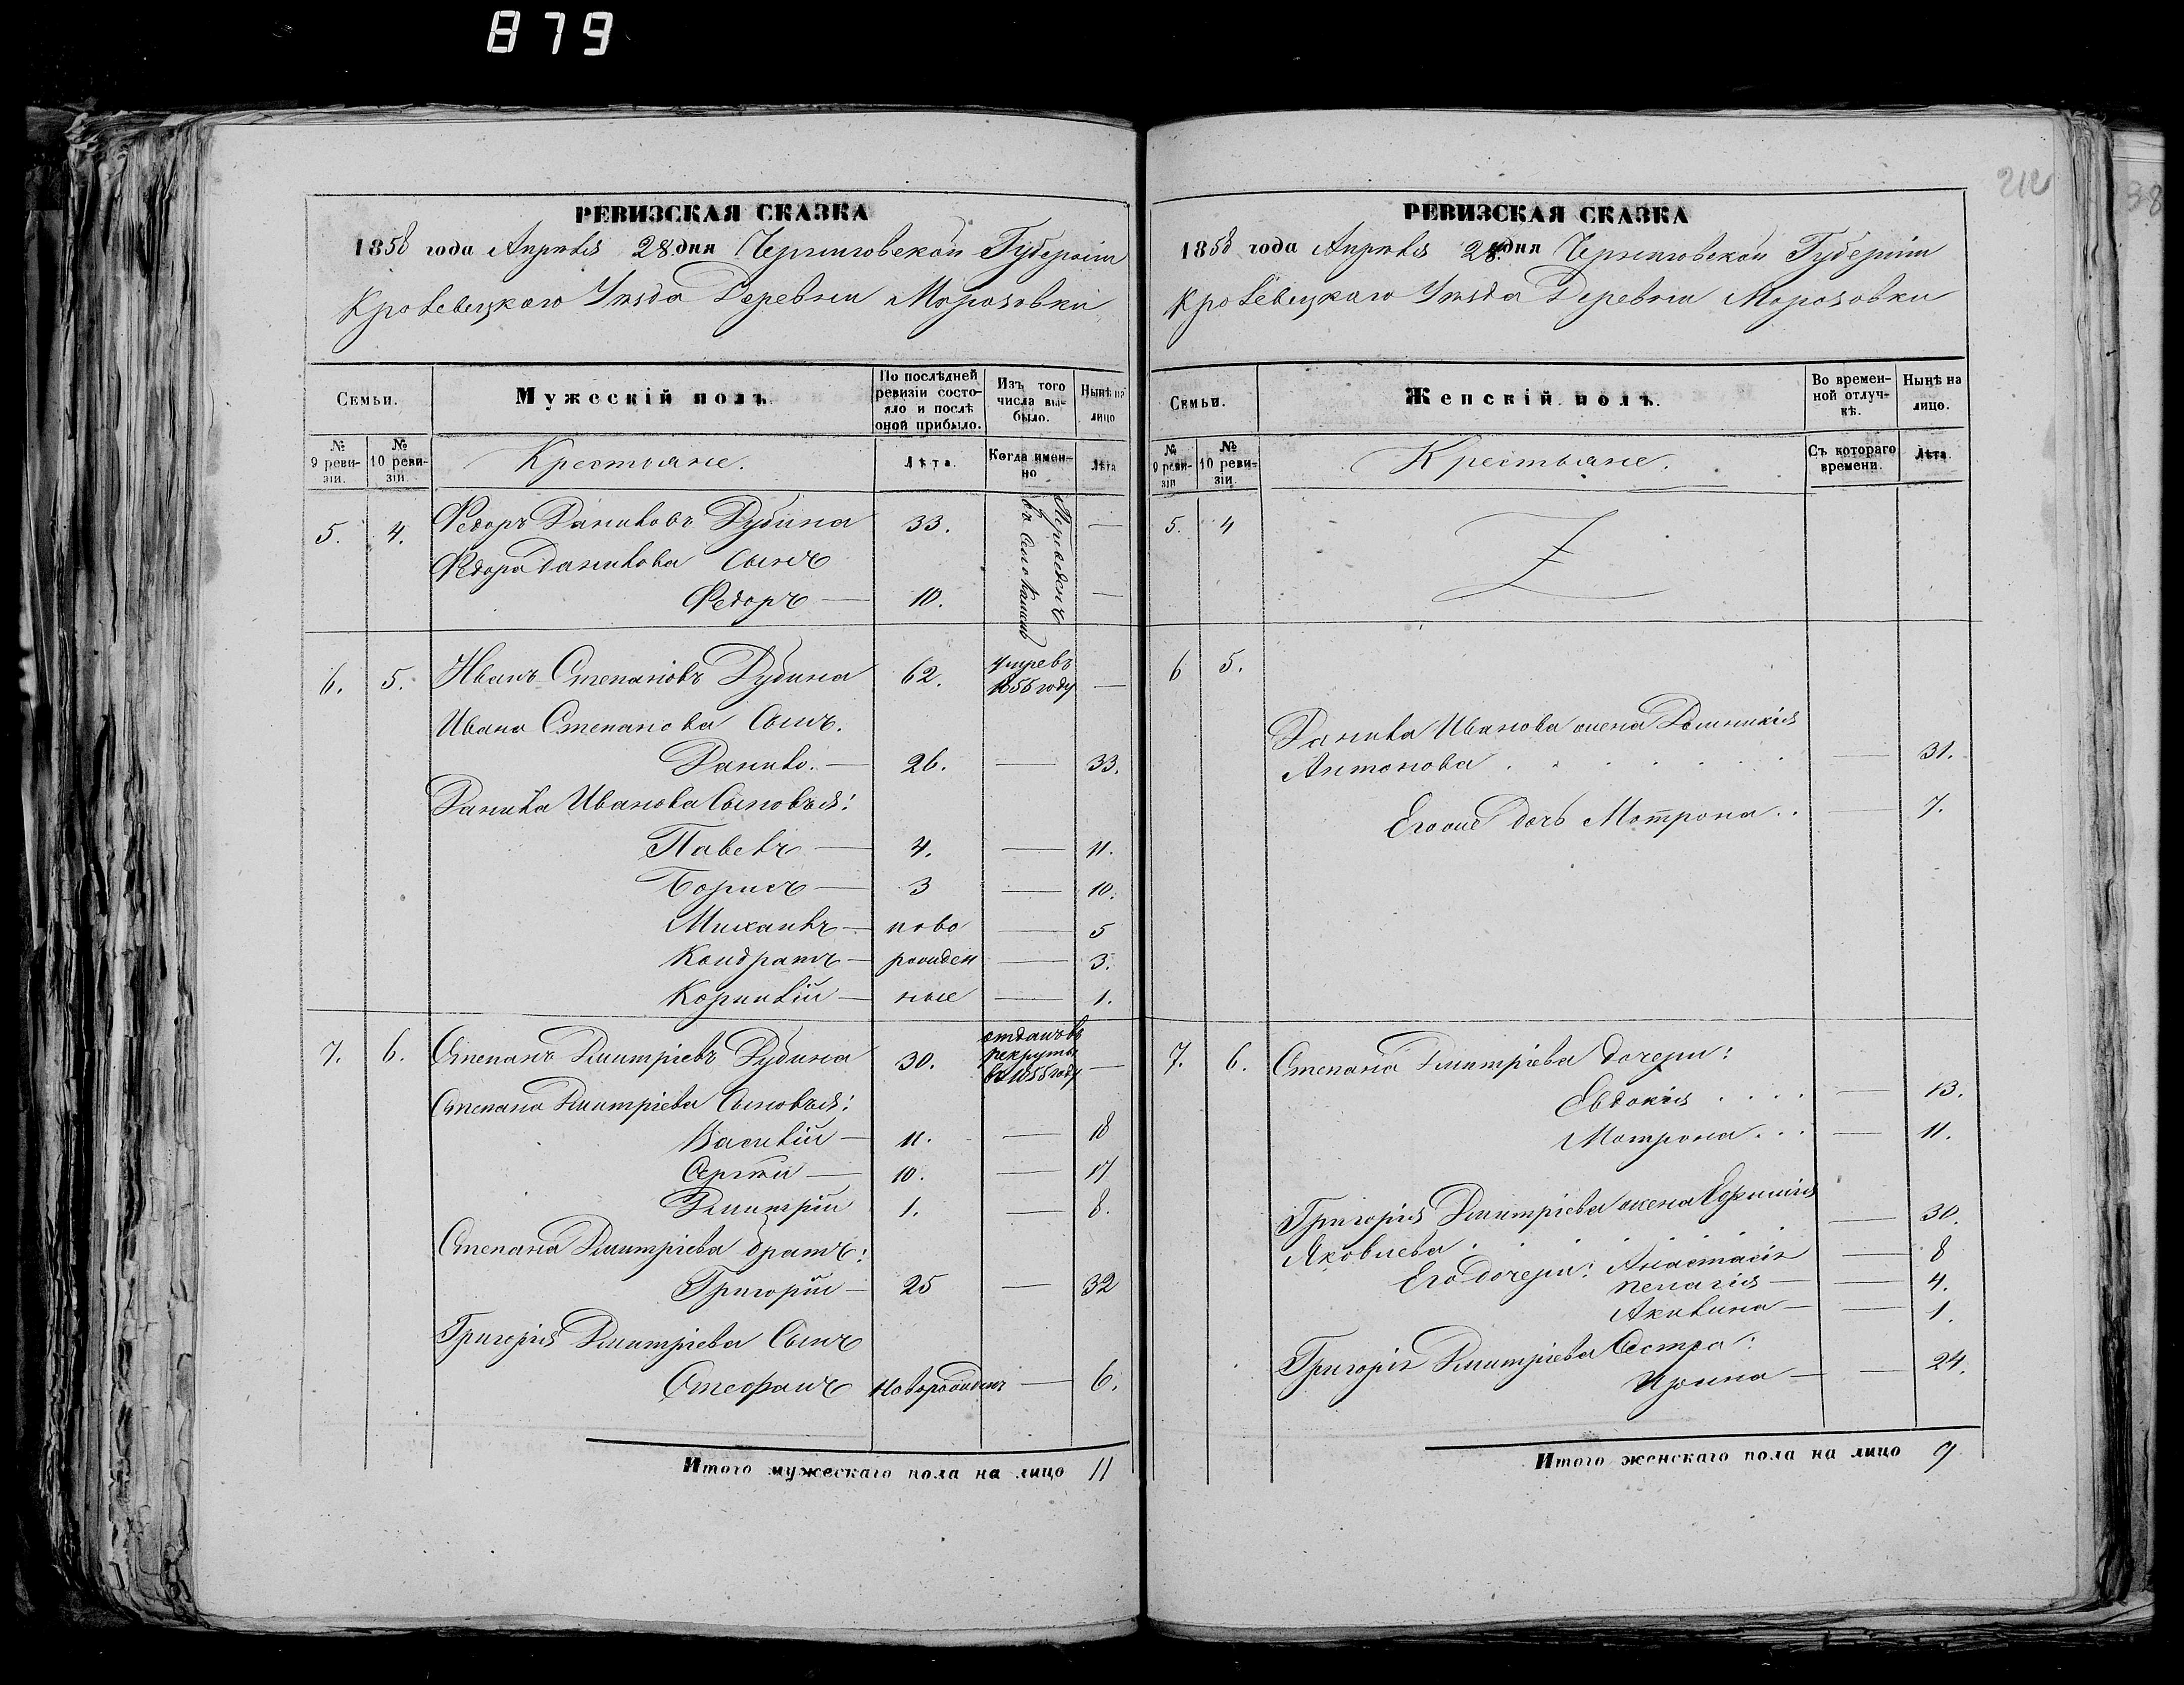 879
212
38
РЕВИЗСКАЯ СКАЗКА
1858 года Апрѣля 28 дня Черниговской Губерніи
Кролевецкаго Уѣзда Деревни Морозовки
Семьи.
Мужескій полъ.
По послѣдней ревизіи состояло и послѣ оной прибыло.
Изъ того числа выбыло.
Нынѣ на лицо
№ 9 ревизіи.
№ 10 ревизіи.
Крестьяне.
Лѣта.
Когда именно
Лѣта
5. 4. Ѳедоръ Даниловъ Дубина 33. Переведенъ въ село —
Ѳедора Данилова Сынъ
Ѳедоръ — 10. —
6. 5. Иванъ Степановъ Дубина 62. умре въ 1856 году —
Ивана Степанова Сынъ.
Данило. — 26. — 33.
Данила Иванова Сыновья:
Павелъ — 4. — 11.
Борисъ — 3 — 10.
Михаилъ — ново — 5
Кондратъ — рожден — 3.
Корнилій — ные — 1.
7. 6. Степанъ Дмитріевъ Дубина 30. отданъ въ рекруты въ 1855 году —
Степана Дмитріева Сыновья:
Василій — 11. — 18
Сергѣй — 10. — 17
Дмитрій 1. — 8.
Степана Дмитріева братъ:
Григорій — 25 — 32
Григорія Дмитріева Сынъ
Стефанъ Новорожденъ — 6.
Итого мужескаго пола на лицо 11
РЕВИЗСКАЯ СКАЗКА
1858 года Апрѣля 28 дня Черниговской Губерніи
Кролевецкаго Уѣзда Деревни Морозовки
Семьи.
Женскій полъ.
Во временной отлучкѣ.
Нынѣ на лицо.
№ 9 ревизіи
№ 10 ревизіи.
Крестьяне.
Съ котораго времени.
Лѣта.
5. 4
6 5.
Данила Иванова жена Домникія
Антонова . . . . . . — 31.
Его же дочь Мотрона . . — 7.
7. 6. Степана Дмитріева дочери:
Евдокія . . . . — 13.
Мотрона . . . — 11.
Григорія Дмитріева жена Ефимія
Яковлева . . . . . . — 30.
Его дочери: Анастасія — 8
Пелагія — — 4.
Акилина — — 1.
Григорія Дмитріева Сестра:
Ирина — — 24.
Итого женскаго пола на лицо 9